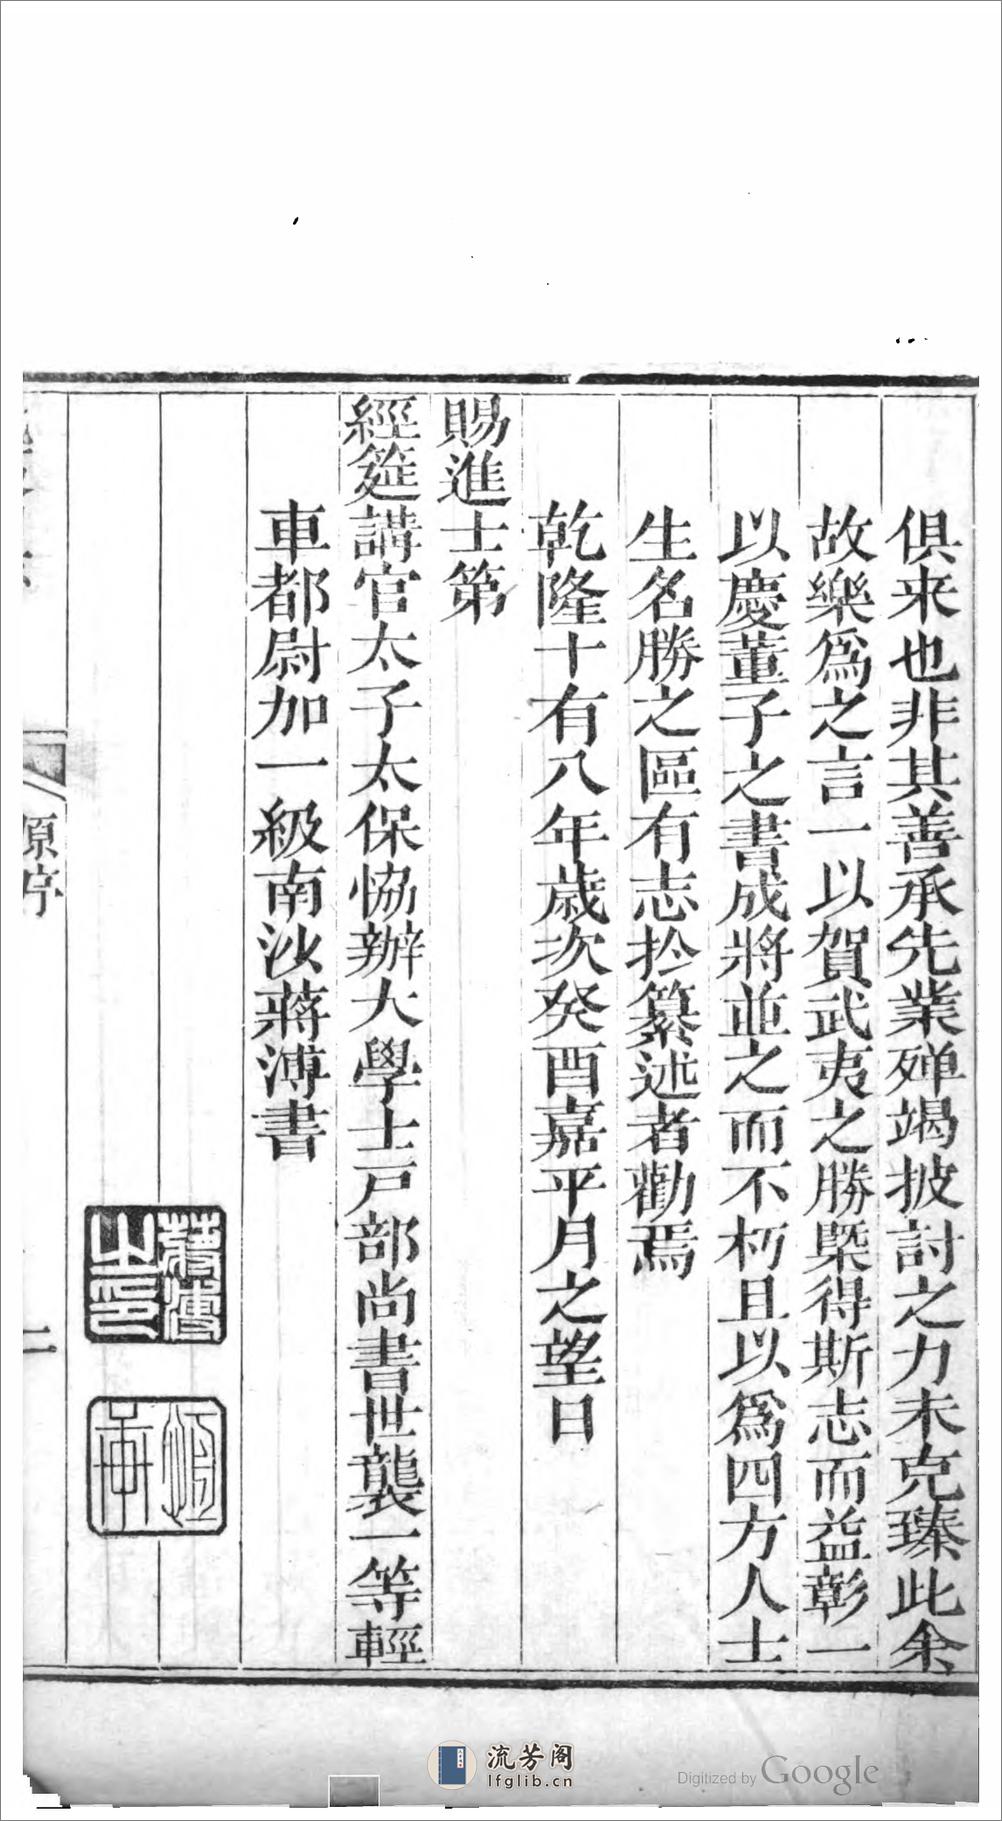 俱来也非其善承先業殫竭披討之力未克臻此余
故樂爲之言一以賀武夷之勝槩得斯志而益彰一
以慶董子之書成將並之而不朽且以爲四方人士
生名勝之區有志於纂述者勸焉
乾隆十有八年歲次癸酉嘉平月之望日
賜進士第
經筵講官太子太保恊辦大學士戸部尚書世襲一等輕
車都尉加一級南沙蔣溥書
蔣溥之印
原序
二
流芳阁
lfglib.cn
Digitized by Google